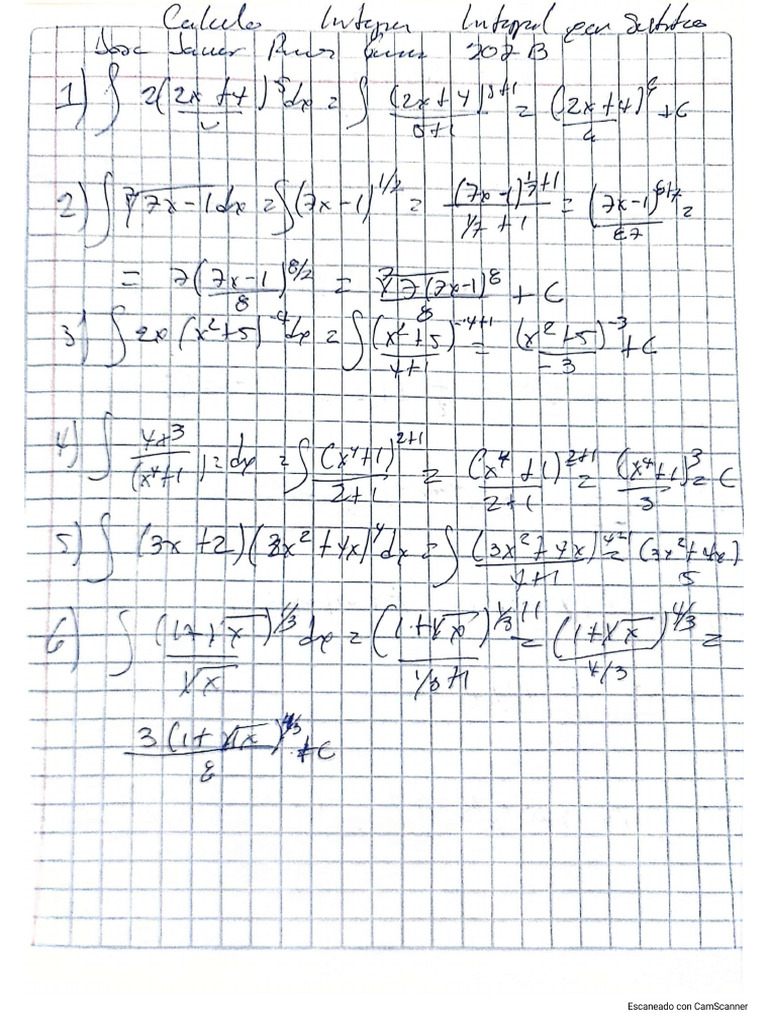 Calculo Integral Integral por
202 B
1) ∫ 2(2x+4)^5 dx = ∫ (2x+4)^5+1 / 5+1 = (2x+4)^6 / 6 +C
2) ∫ ⁷√7x-1 dx = ∫(7x-1)^1/7 = (7x-1)^1/7+1 / 1/7+1 = (7x-1)^8/7 / 8/7 =
= 7(7x-1)^8/7 / 8 = ⁷√7(7x-1)^8 / 8 + C
3) ∫ 2x(x²+5)^-4 dx = ∫ (x²+5)^-4+1 / 4+1 = (x²+5)^-3 / -3 +C
4) ∫ 4x3 / (x⁴+1)=2 dx = ∫ (x⁴+1)^2+1 / 2+1 = (x⁴+1)^2+1 / 2+1 = (x⁴+1)^3 / 3 = C
5) ∫ (3x+2)(3x²+4x)^4 dx = ∫ (3x²+4x)^4+1 / 4+1 = (3x²+4x) / 5
6) ∫ (1+√x)^1/3 / √x dx = (1+√x)^1/3+1 / 1/3+1 = (1+√x)^4/3 / 4/3 =
3(1+√x)^4/3 / 8 +C
Escaneado con CamScanner